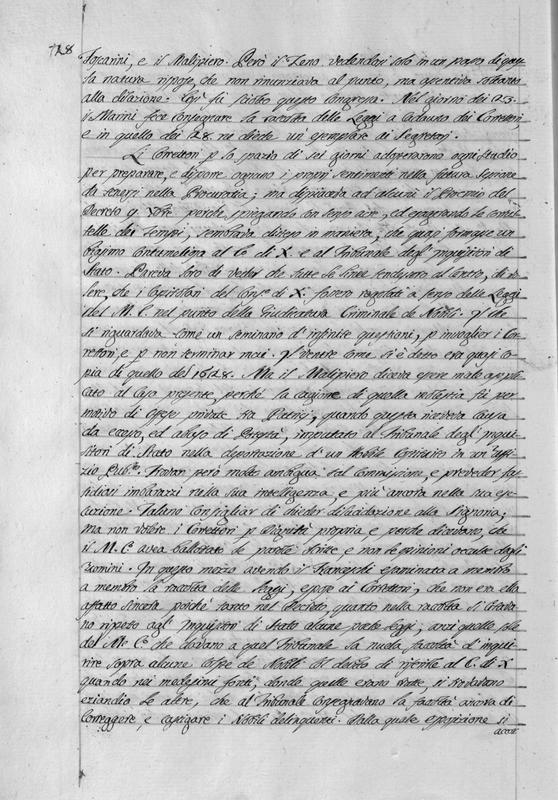 728
Foscarini, e il Malipiero. Però il Zeno vedendosi solo in un passo di ques
ta natura rispose, che non rinunziava al punto, ma assentiva soltanto
alla dilazione. Così fu sciolto questo Congresso. Nel giorno dei 23.
il Marini fece consegnare la raccolta delle Leggi a cadauno dei Correttori,
e in quello dei 28. ne diede un esemplare ai Segretarj.
Li Correttori p lo spazio di sei giorni adoperarono ogni studio
per preparare, e disporre ognuno i proprj sentimenti nella futura
da tenersi nella Procuratia; ma dispiaceva ad alcuni il Proemio del
Decreto q. Xbre perche, spiegando con senso, ed esagerando la
dei Tempi, sembrava disteso in maniera, che quasi formasse un
biasimo contumelioso al C.o di X. e al Tribunale degl' Inquisitori di
Stato. Pareva loro di veder che tutte le linee tendessero al Centro, di vo
lere, che i Capitolari del Cons.o di X. fossero regolati a senso delle Leggi
del M. C. nel punto della Giudicatura Criminale de Nobili. Il che
si riguardava come un seminario d' infinite questioni, p invogliar i Cor
rettori e p non terminar mai. come si è detto era quasi co
pia di quello del 1628. Ma il Malipiero diceva essere malo appli
cato al Caso presente, perchè la cagione di quella fù per
motivo di offese private tra Patrizj, quando questa riceveva causa
da eccesso, ed abuso di Potestà, imputato al Tribunale degl' Inqui
sitori di Stato nella deportazione d' un Nobile costituito in un uffi
zio Pub.co. Trovan però molto ambigua tal Commissione, e preveder fas
tidiosi imbarazzi nella sua intelligenza e più ancora nella sua ese
cuzione. Taluno consigliava di chieder dilucidazione alla Signoria;
ma non volere i Correttori p Dignità propria e perche dicevano, che
il M. C. avea ballottate le parole scritte e non le opinioni occulte degli
Uomini. In questo mezzo avendo il Franceschi esaminata a membro
a membro la raccolta delle Leggi, espose ai Correttori, che non era ella
affatto sincera poiché tanto nel Decreto, quanto nella raccolta si citavano
rispetto agl' Inquisitori di Stato alcune poche Leggi, anzi quelle sole
del M. C. che davano a quel Tribunale la nuda facoltà d' inqui
rire sopra alcune colpe de Nobili col debito di riferirle al C. di X
quando nei medesimi fonti, donde quelle erano tratte, si trovavano
eziandio le altre, che al Tribunale consegnavano la facoltà ancora di
correggere, e castigare i Nobili delinquenti. Dalla quale esposizione si
accor